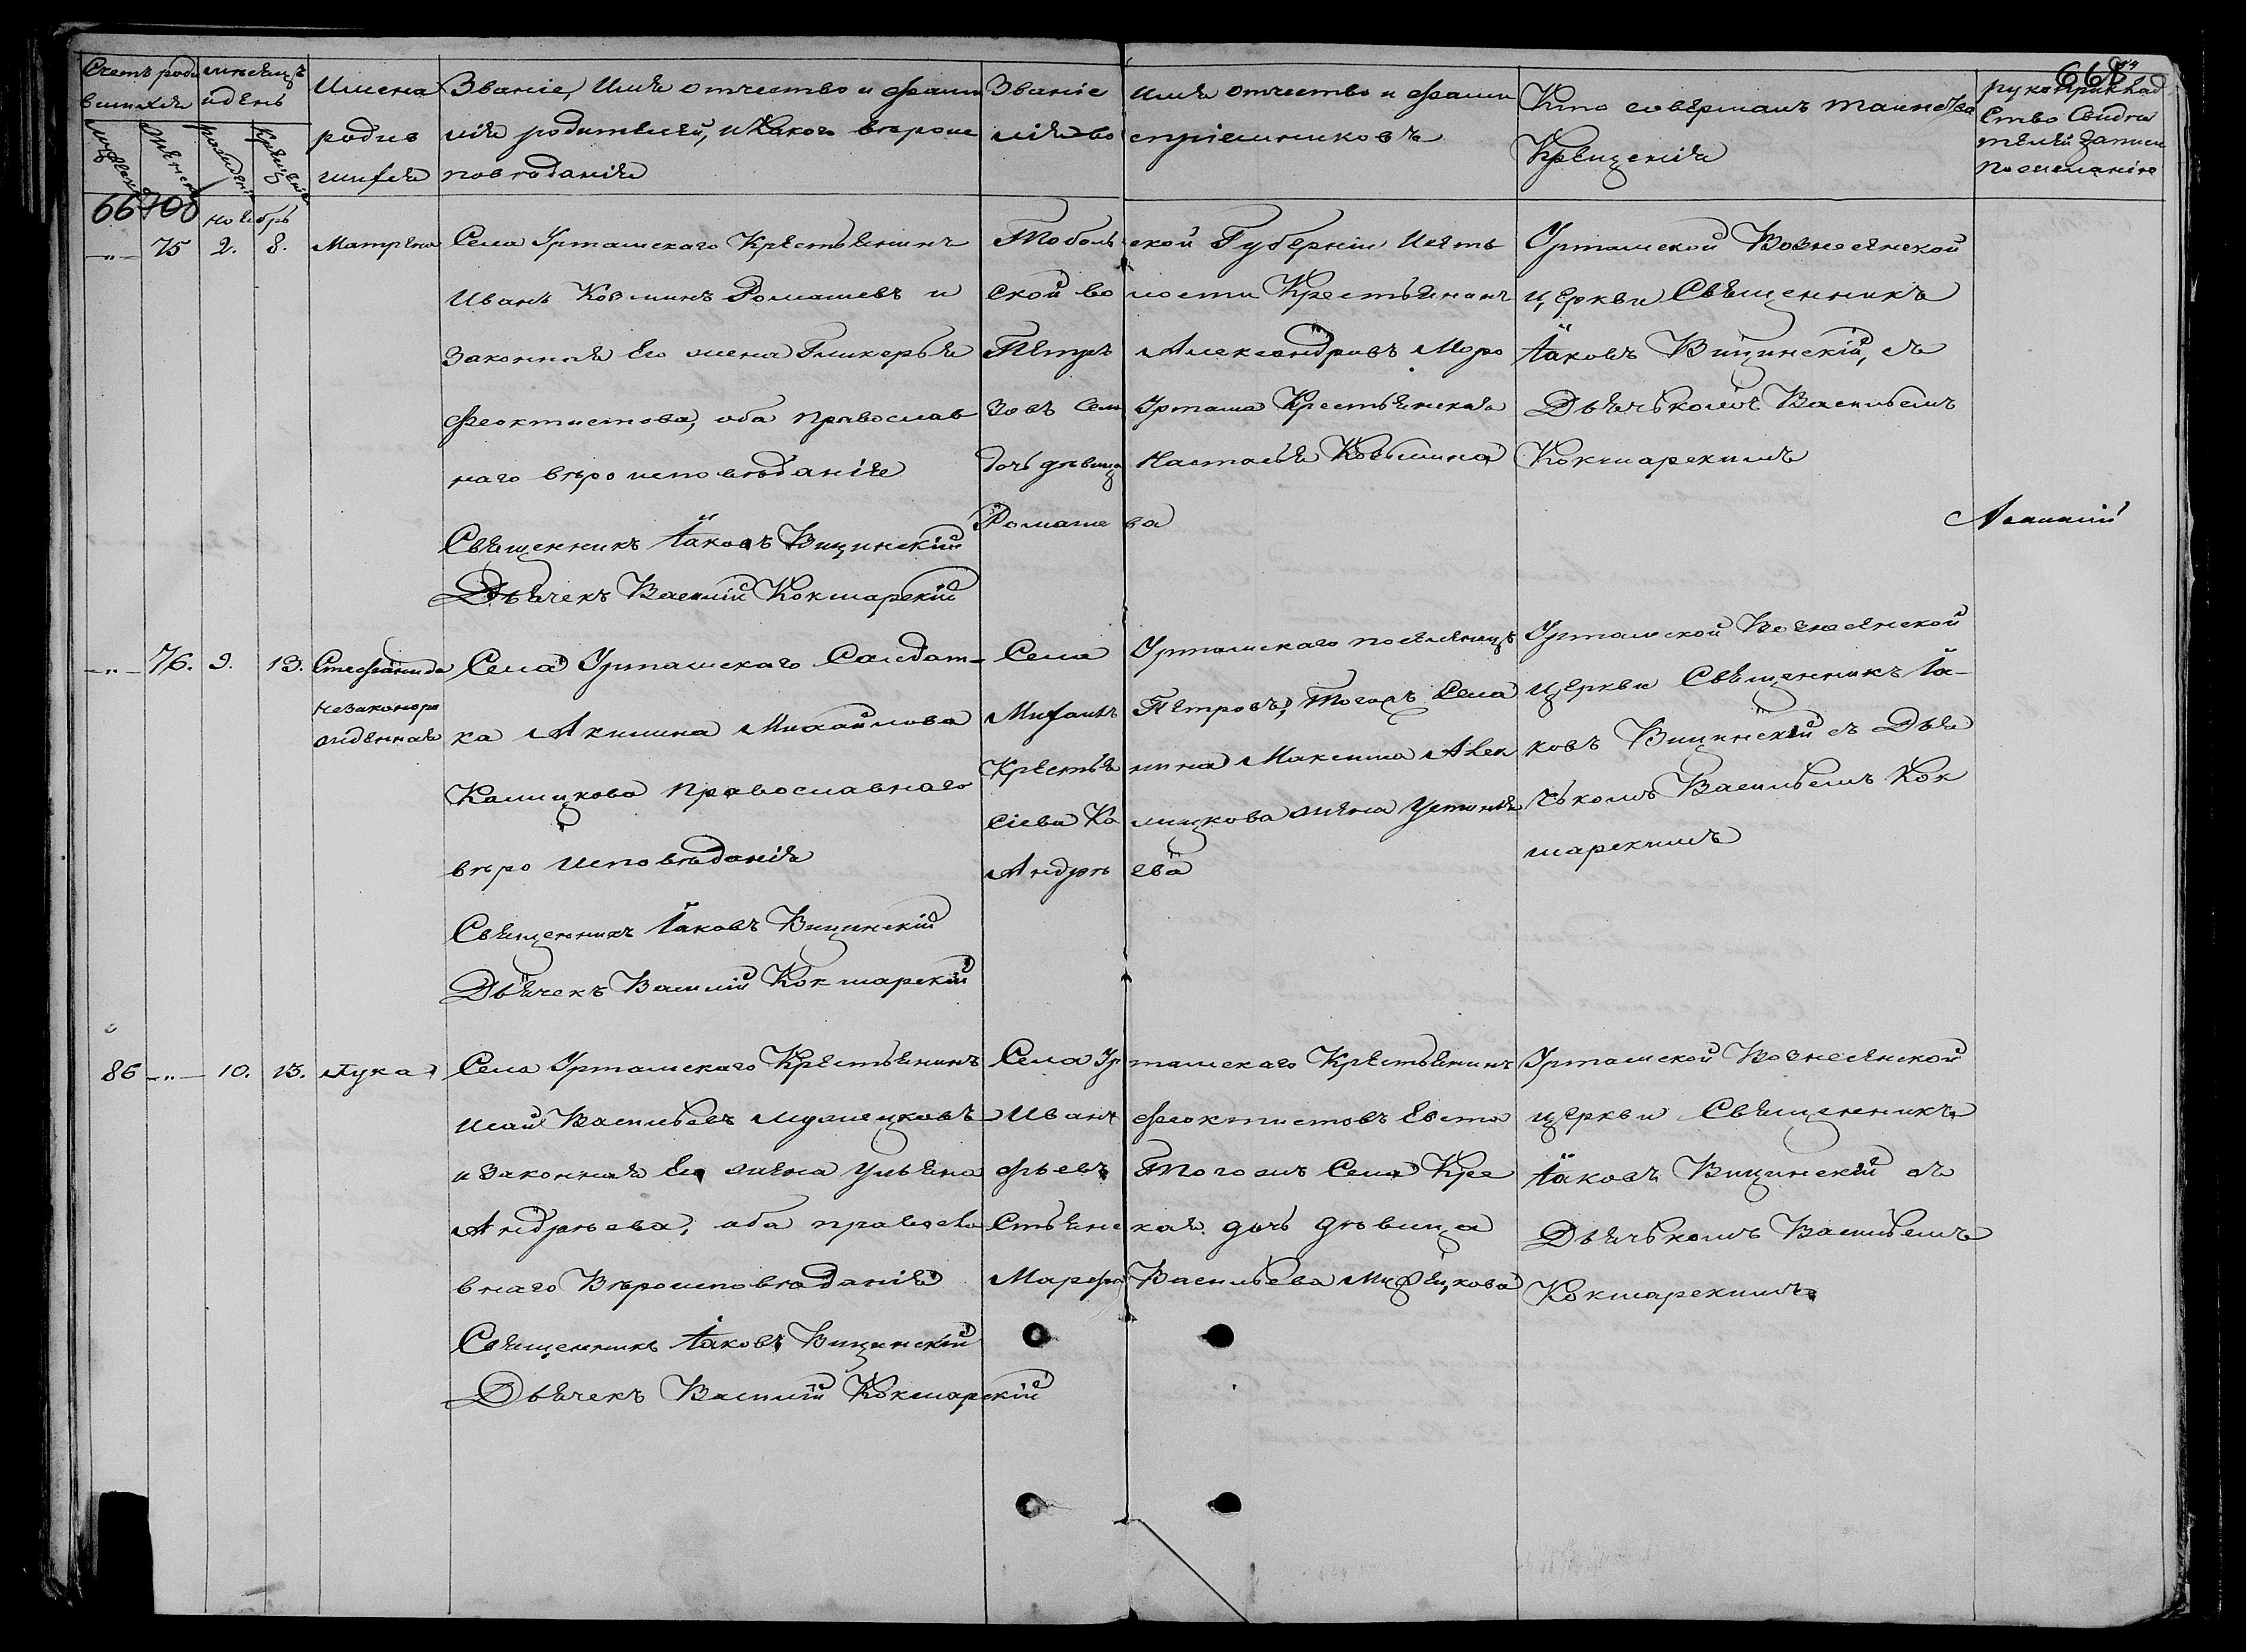 668
Счетъ роди вшихся
мѣсяцъ и день
мужеска женска рожденія крещенія
Имена родив шихся
Званіе, Имя отчество и фами
лія родителей, и какого вѣроис
повѣданія
Званіе имя отчество и фами
лія во спріемниковъ
Кто совершалъ таинство
Крещенія
рукоприклад
ство Свидѣ
телей записи
по желанію
Ноябрь
75 2. 8. Матрена
Села Уртамскаго Крестьянинъ
Иванъ Козминъ Ромашевъ и
законная Его жена Гликерья
Феоктистова, оба православ
наго вѣроисповѣданія
Священникъ Іаковъ Вицинскій
Дьячекъ Василій Кокшарскій
Тоболь ской Губерніи
ской во лости Крестьянинъ
Петръ Александровъ Моро
зовъ Села Уртама Крестьянская
дочь дѣвица Настасья Козьмина
Ромаше ва
Уртамской Вознесенской
церкви Священникъ
Іаковъ Вицинскій, съ
Дьячькомъ Васильемъ
Кокшарскимъ
76. 9. 13. Стефанида
незаконоро
жденная
Села Уртамскаго Салдат-
ка Акилина Михайлова
Калицкова Православнаго
вѣро Исповѣданія
Священникъ Іаковъ Вицинскій
Дьячекъ Василій Кокшарскій
Села Уртамскаго поселенецъ
Михаилъ Петровъ, Тогожъ Села
Крестья нина Максима Алек
сіева Ка лицкова жена Устинья
Андрѣ ева
Уртамской Вознесенской
церкви Священникъ Іа-
ковъ Вицинскій съ Дья
чькомъ Васильемъ Кок
шарскимъ
86 10. 13. Лука
Села Уртамскаго Крестьянинъ
Исай Васильевъ
и законная Его жена Ульяна
Андрѣева, оба правосла
внаго Вѣроисповѣданія
Священникъ Іаковъ Вицинскій
Дьячекъ Василій Кокшарскій
Села Ур тамскаго Крестьянинъ
Иванъ Феоктистовъ Евста
фьевъ Тогожъ Села Кре
стьянс кая дочь дѣвица
Марфа Васильева
Уртамской Вознесенской
церкви Священникъ
Іаковъ Вицинскій съ
Дьячькомъ Васильемъ
Кокшарскимъ